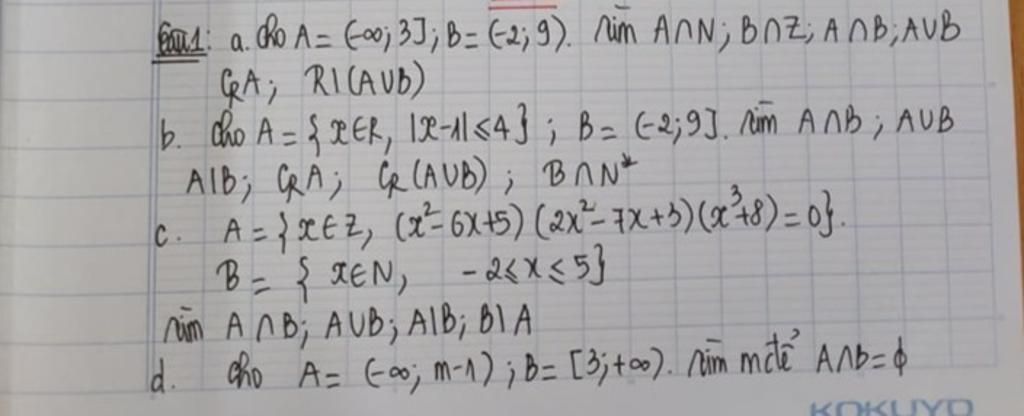 Câu 1: a. Cho A = (-∞; 3]; B = (-2; 9). Tìm A∩N; B∩Z; A∩B; A∪B
CRA; R\(A∪B)
b. Cho A = {x∈R, |x-1|≤4}; B = (-2; 9]. Tìm A∩B; A∪B
A\B; CRA; CR(A∪B); B∩N*
c. A = {x∈Z, (x²-6x+5)(2x²-7x+3)(x³+8)=0}.
B = {x∈N, -2≤x≤5}
Tìm A∩B; A∪B; A\B; B\A
d. Cho A = (-∞; m-1); B = [3; +∞). Tìm m để A∩B=ϕ
KOKUYO